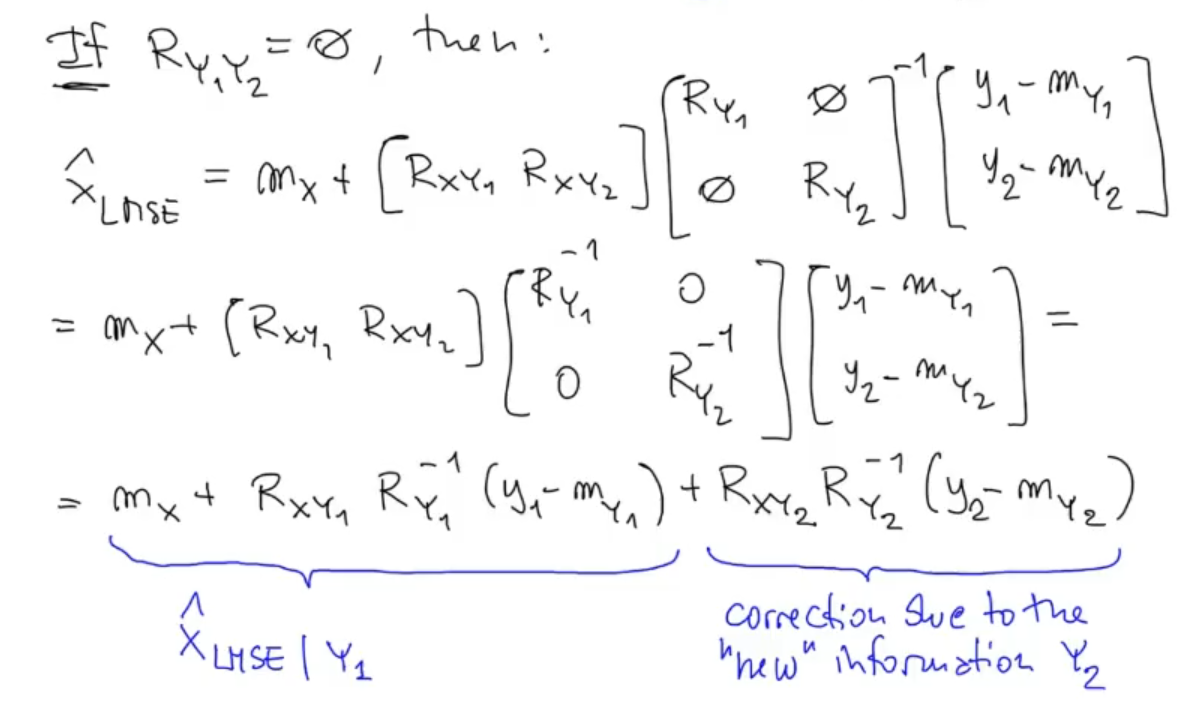 If R_{Y₁Y₂} = ∅, then:
x̂_{LMSE} = m_X + [R_{XY₁} R_{XY₂}] [R_{Y₁} ∅; ∅ R_{Y₂}]^{-1} [y₁ - m_{Y₁}; y₂ - m_{Y₂}]
= m_X + [R_{XY₁} R_{XY₂}] [R_{Y₁}^{-1} 0; 0 R_{Y₂}^{-1}] [y₁ - m_{Y₁}; y₂ - m_{Y₂}] =
= m_X + R_{XY₁} R_{Y₁}^{-1} (y₁ - m_{Y₁}) + R_{XY₂} R_{Y₂}^{-1} (y₂ - m_{Y₂})
x̂_{LMSE} | Y₁
correction due to the
"new" information Y₂